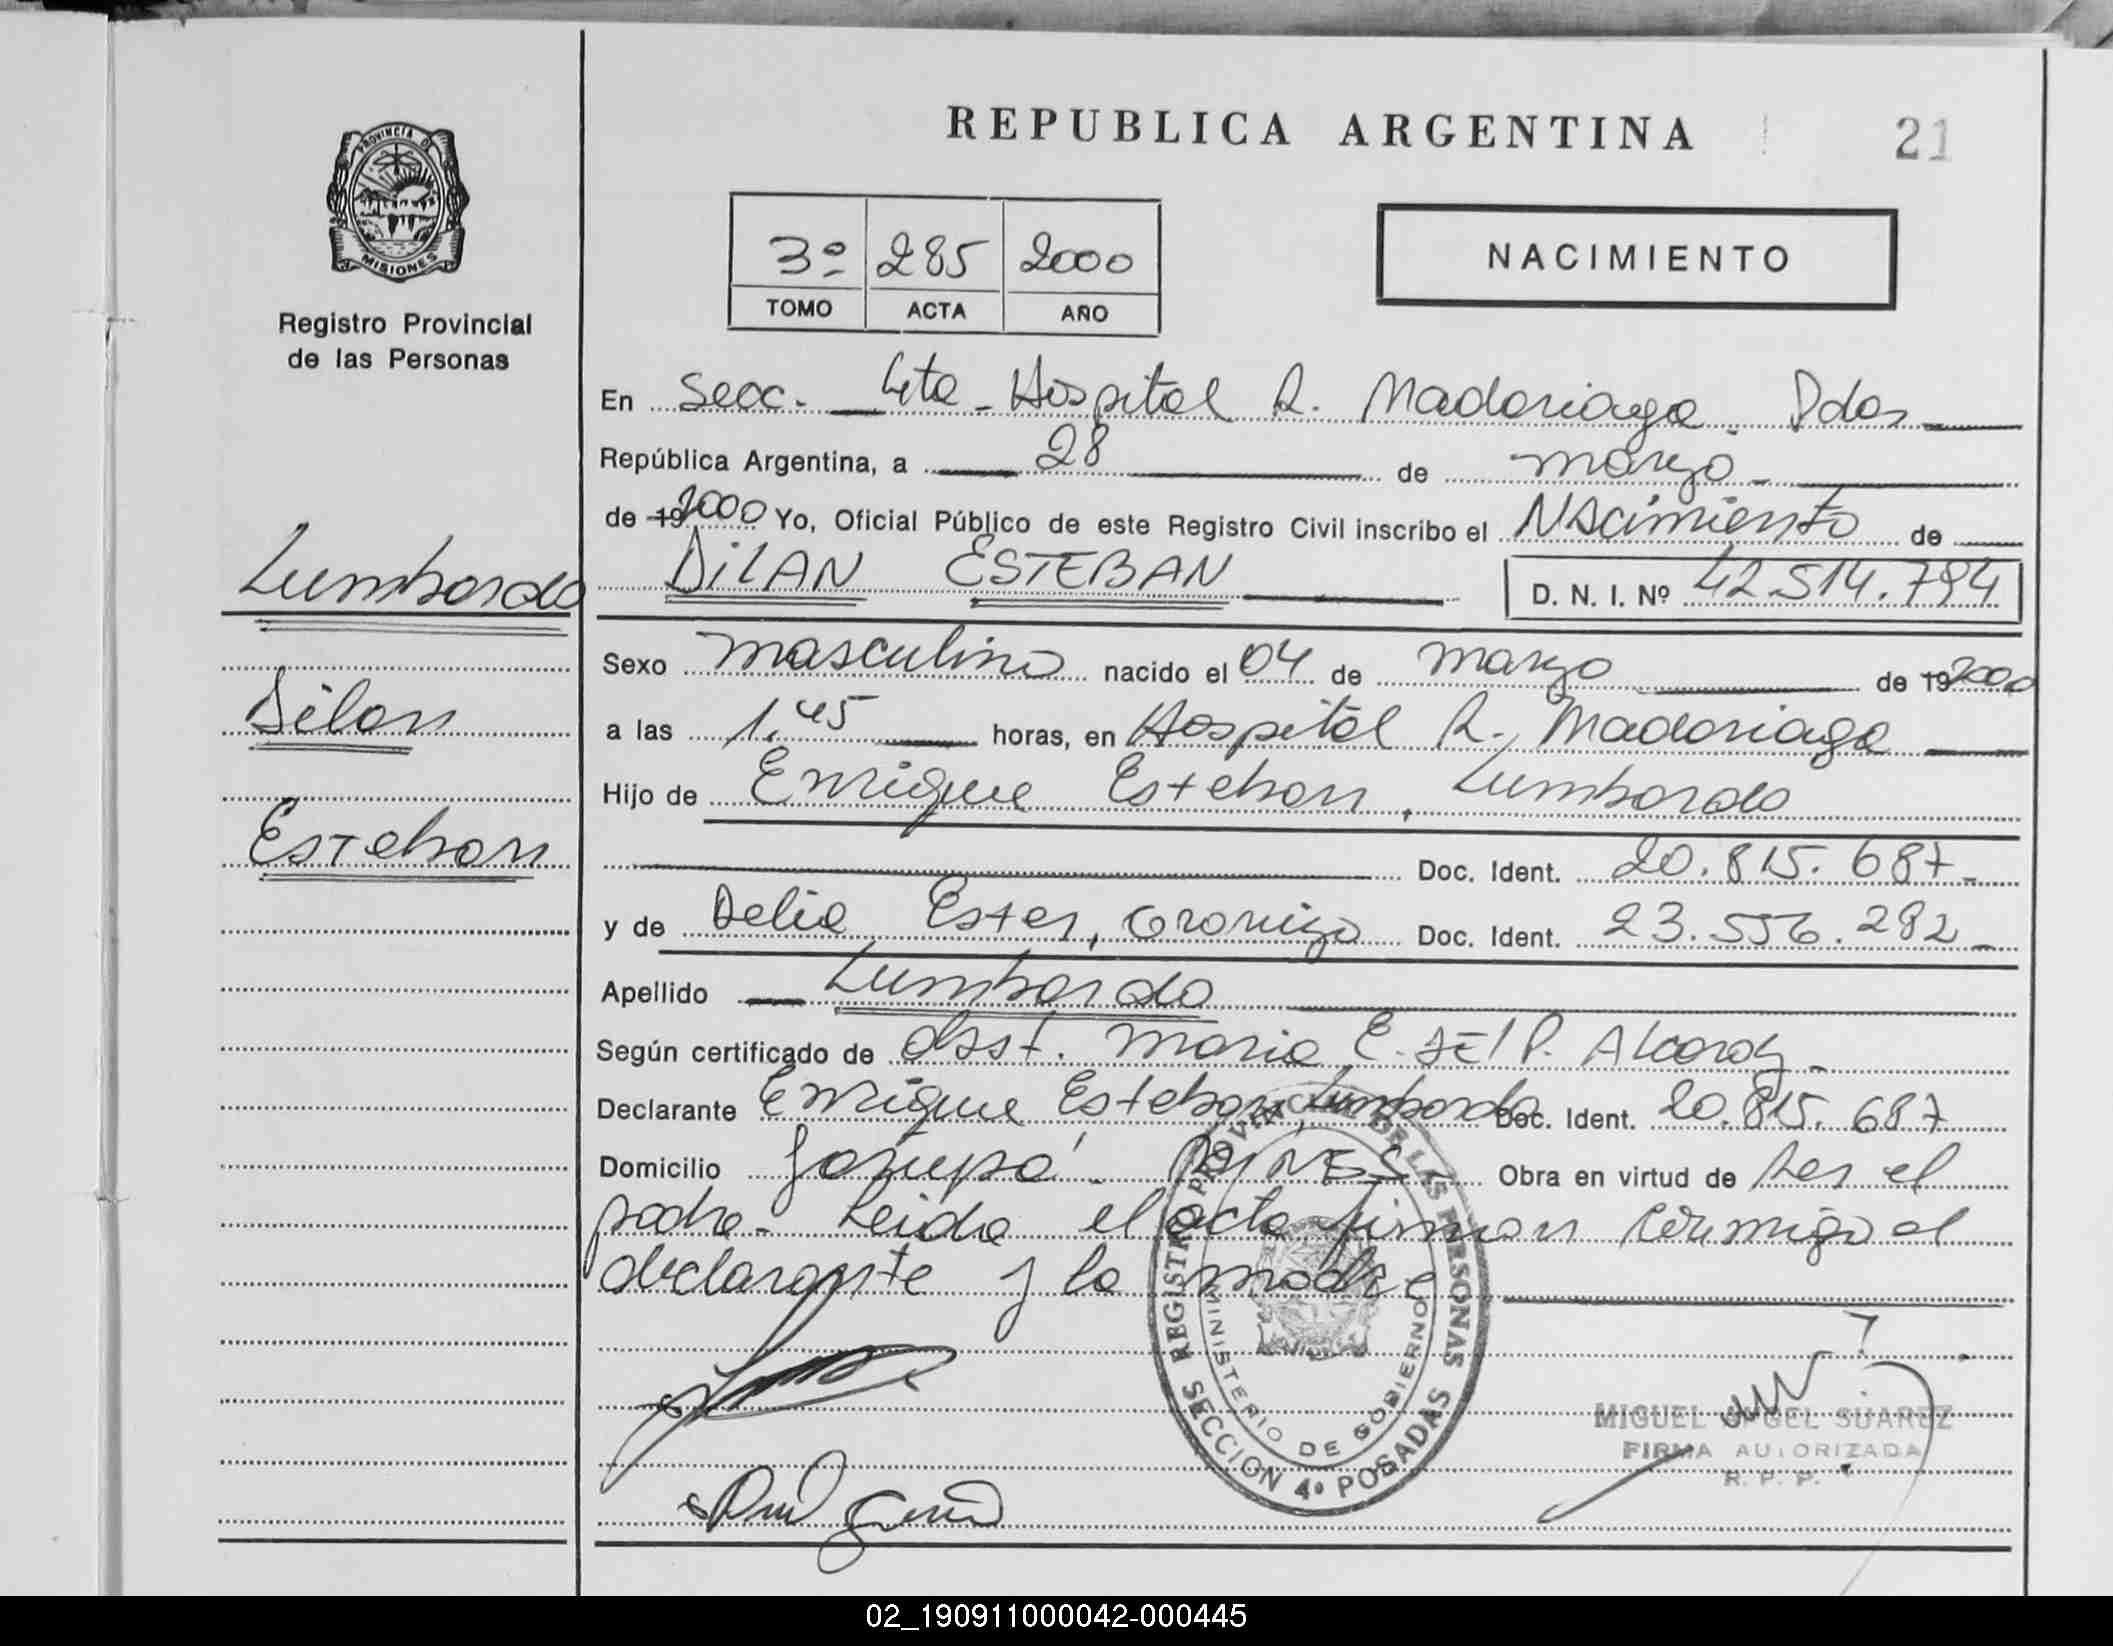 REPUBLICA ARGENTINA
21
PROVINCIA DE
MISIONES
Registro Provincial
de las Personas
3º 285 2000
TOMO ACTA AÑO
NACIMIENTO
En Secc. 4ta - Hospital R. Madariaga - Pdas
República Argentina, a 28 de marzo -
de 19 2000 Yo, Oficial Público de este Registro Civil inscribo el Nacimiento de
DiLAN ESTEBAN D. N. I. Nº 42.514.794
Lumbardo
Dilan
Esteban
Sexo masculino nacido el 04 de marzo de 19 2000
a las 1.45 horas, en Hospital R. Madariaga
Hijo de Enrique Esteban, Lumbardo
Doc. Ident. 20.815.687-
y de Delia Ester, Doc. Ident. 23.556.292-
Apellido Lumbardo
Según certificado de Obst. Maria E. del P.
Declarante Enrique Esteban, Lumbardo Doc. Ident. 20.815.687
Domicilio Garupá - Obra en virtud de ser el
padre - Leida el acta firman conmigo el
declarante y la madre
REGISTRO PROVINCIAL DE LAS PERSONAS
MINISTERIO DE GOBIERNO
SECCION 4ª POSADAS
MIGUEL ANGEL SUAREZ
FIRMA AUTORIZADA
R. P. P.
02_190911000042-000445